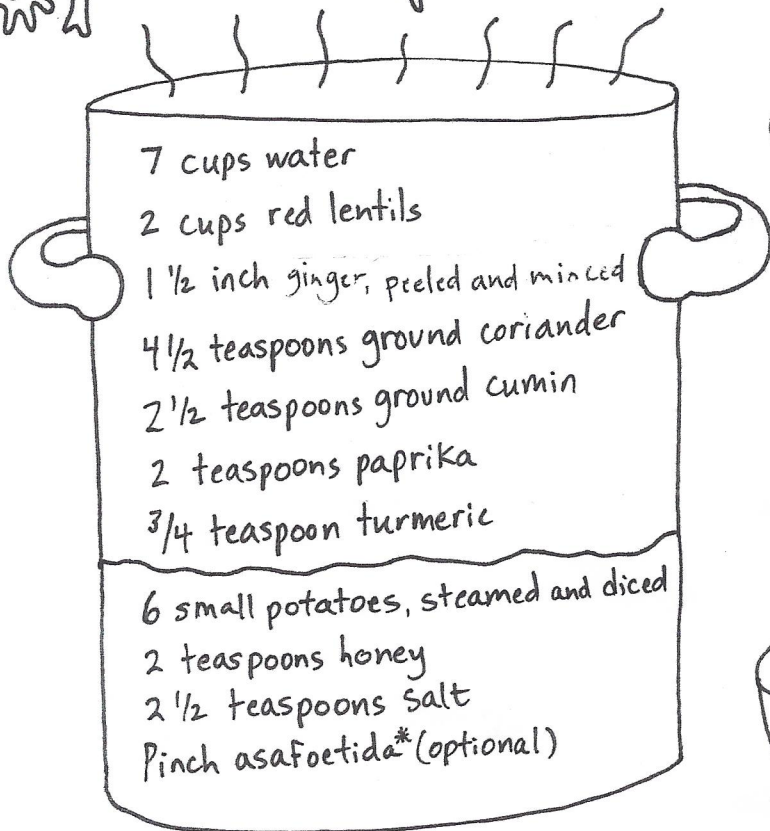 7 cups water
2 cups red lentils
1 1/2 inch ginger, peeled and minced
4 1/2 teaspoons ground coriander
2 1/2 teaspoons ground cumin
2 teaspoons paprika
3/4 teaspoon turmeric
6 small potatoes, steamed and diced
2 teaspoons honey
2 1/2 teaspoons salt
Pinch asafoetida* (optional)